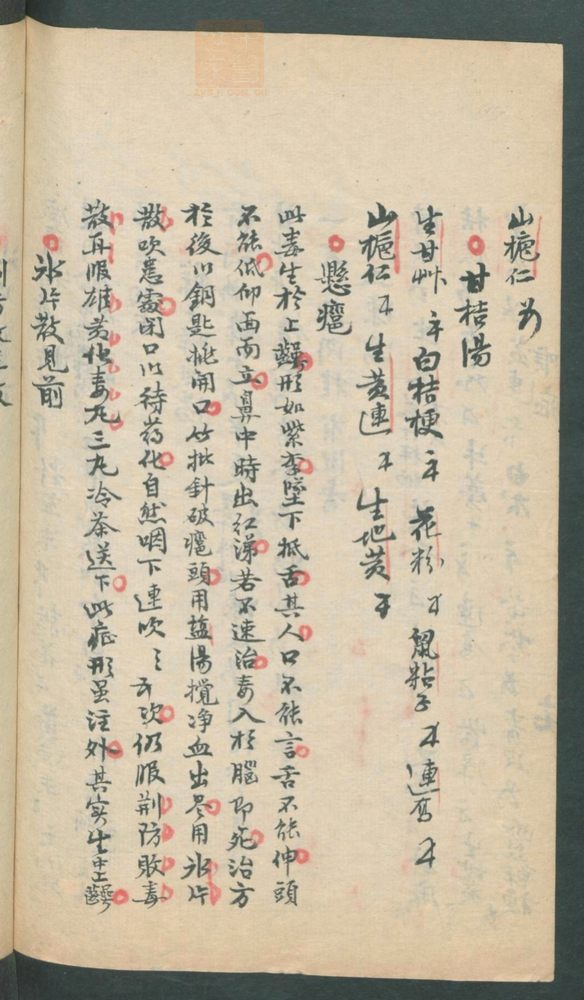 山梔仁
甘桔湯
生甘艸 白桔梗 花粉 鼠粘子 連
山梔仁 生黃連 生地黃
懸癰
此毒生於上齶形如紫李墜下抵舌其人口不能言舌不能伸頭
不能低仰面而立鼻中時出紅涕若不速治毒入於腦即死治方
於後以鋼匙挑開口竹批針破癰頭用鹽湯攪净血出尽用氷片
散吹患處闭口以待葯化自然咽下連吹三五次仍服荊防敗毒
散再服雄黃化毒丸三丸冷茶送下此症形虽注外其实生上齶
氷片散見前